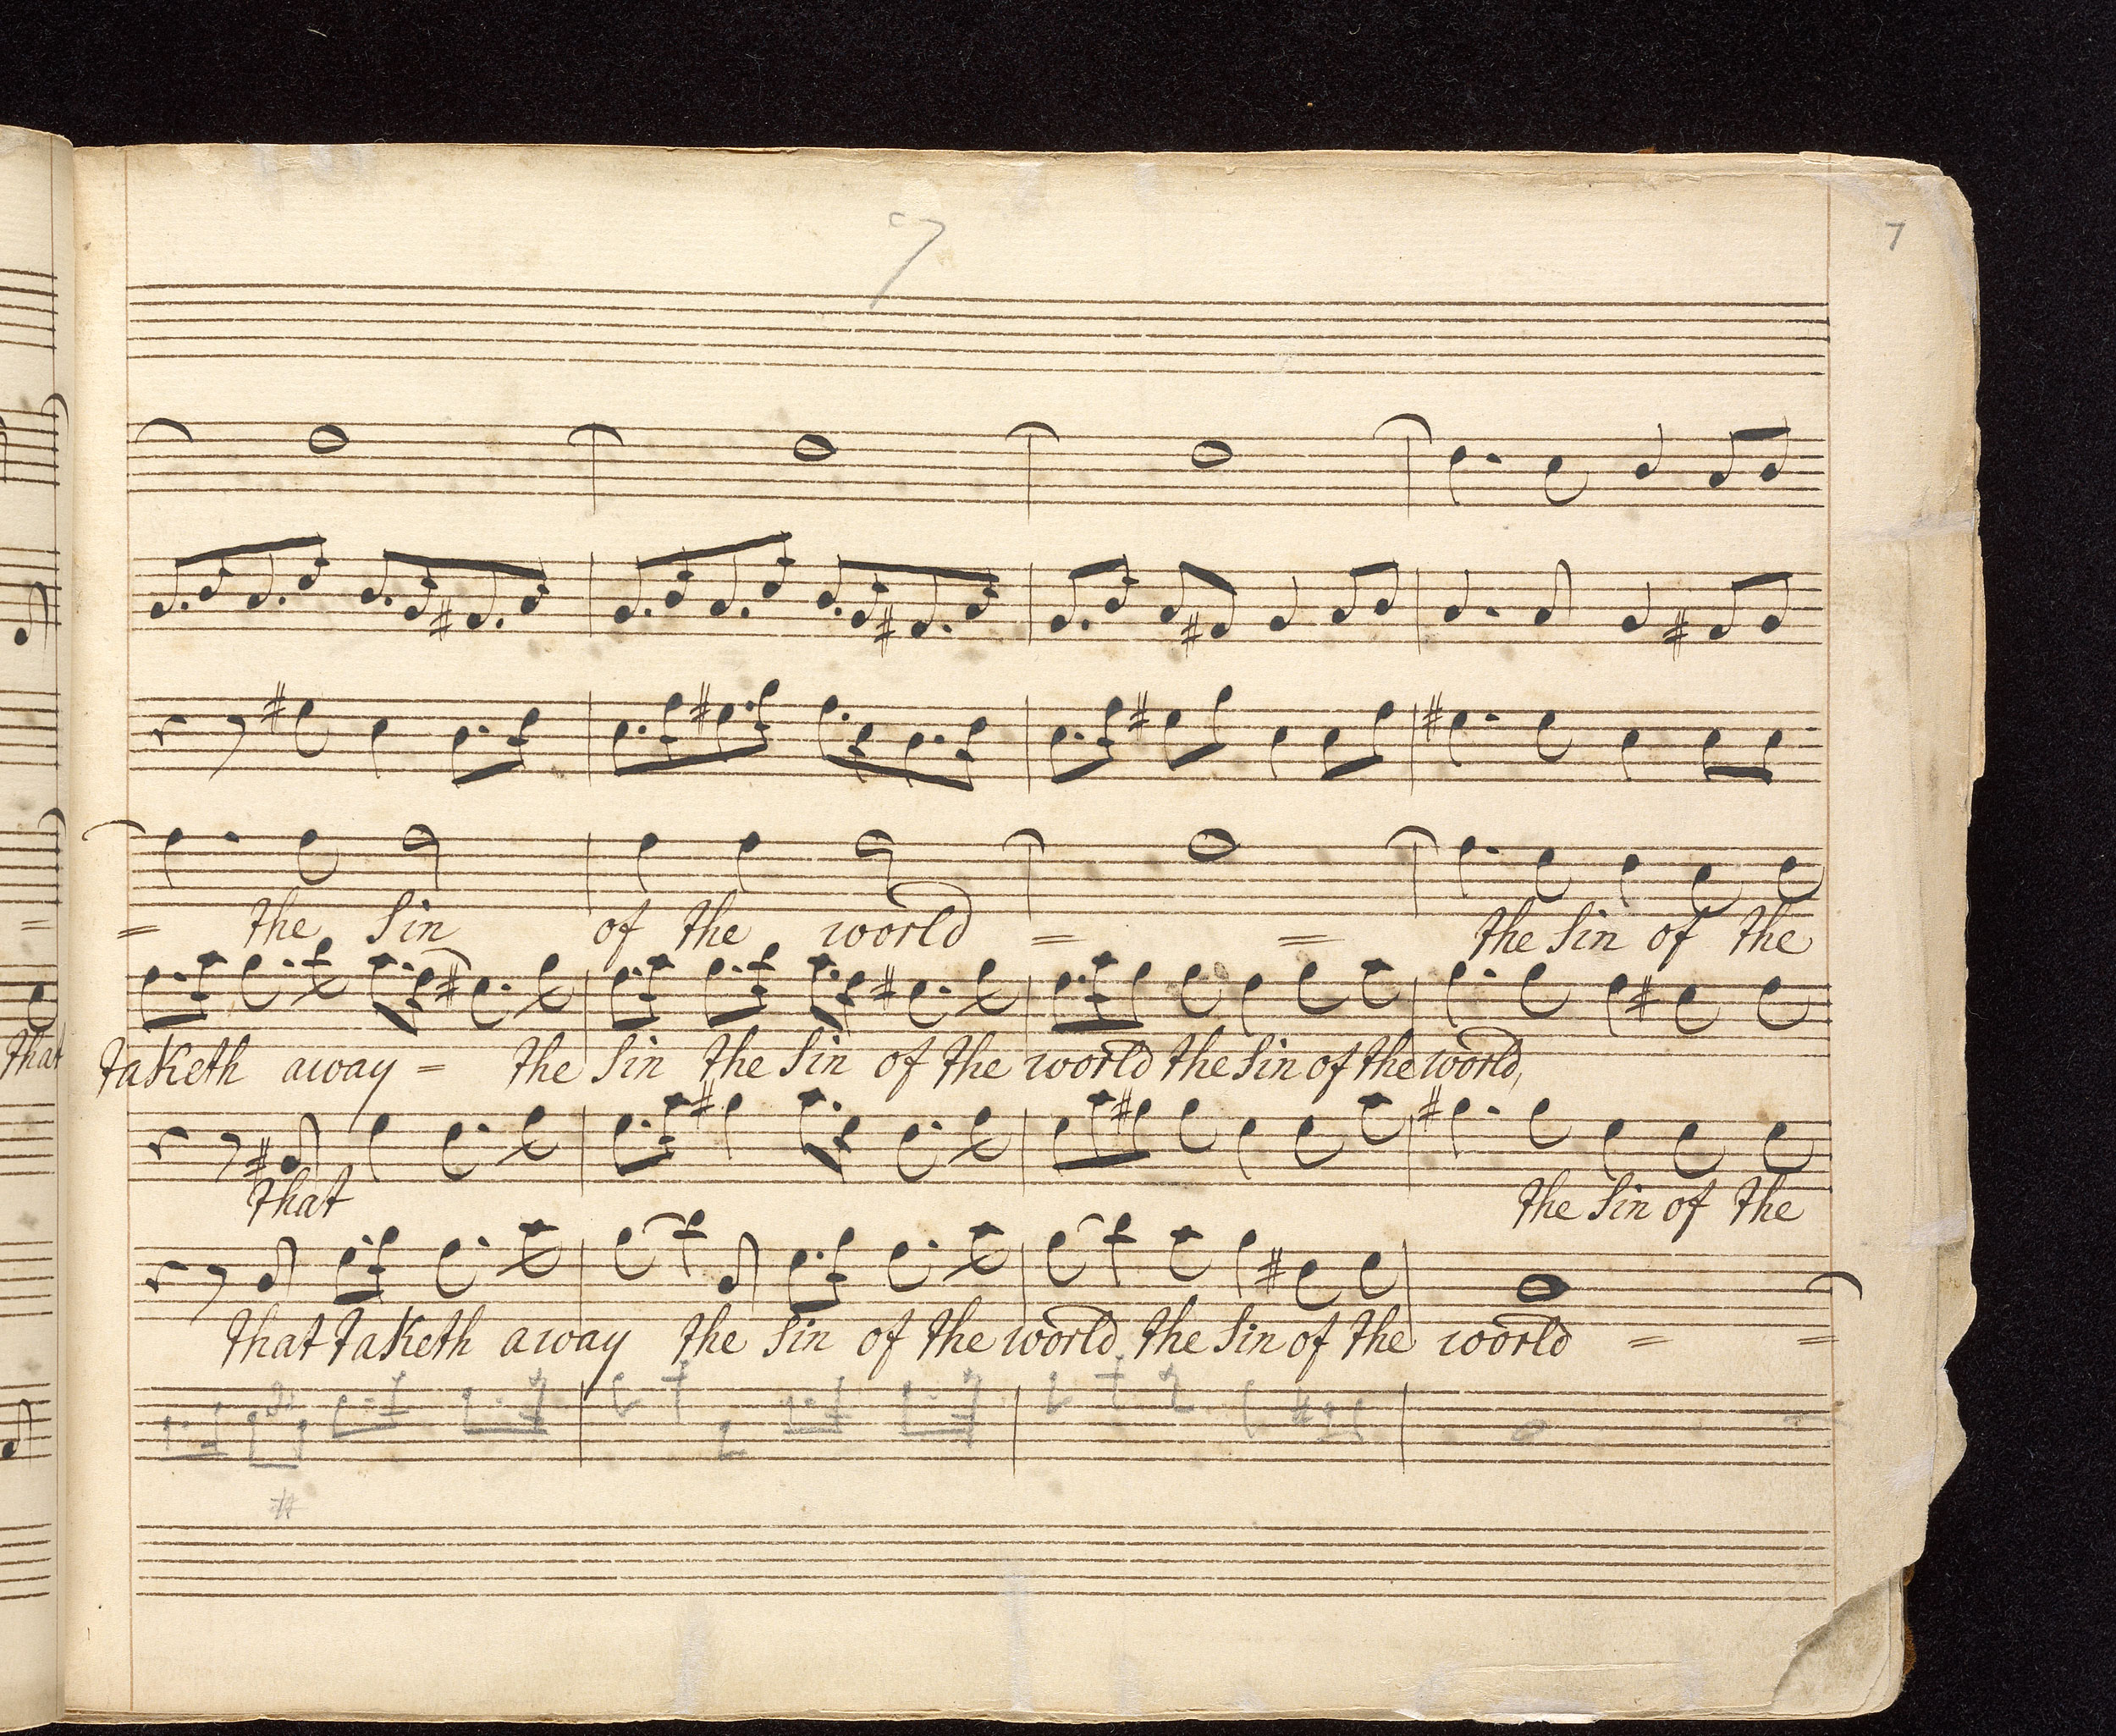 7
7
= the Sin of the world = = the Sin of the
=
that taketh away = the Sin the Sin of the world the Sin of the world,
that the Sin of the
that taketh away the Sin of the world the Sin of the world = =